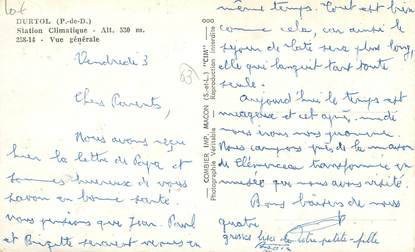 Lot
DURTOL (P.-de-D.)
Station Climatique - Alt. 530 m.
258-14 - Vue générale
Vendredi 3
63
Chers Parents,
Nous avons reçu
hier la lettre de Papa et
sommes heureux de vous
savoir en bonne santé.
Nous pensions que Jean-Paul
et Brigitte seraient venus en
COMBIER IMP. MACON (S.-et-L.) "CIM"
Photographie Véritable - Reproduction Interdite
même temps. Tout est bien
comme cela, car ainsi le
séjour de sera plus long,
elle qui languit tant toute
seule.
Aujourd'hui le temps est
nuageux et cet après-midi
nous irons nous promener.
Nous campons près de la maison
de Clémenceau transformée en
musée que nous avons visité.
Bons baisers de nous
quatre
grosses bises de votre petite-fille